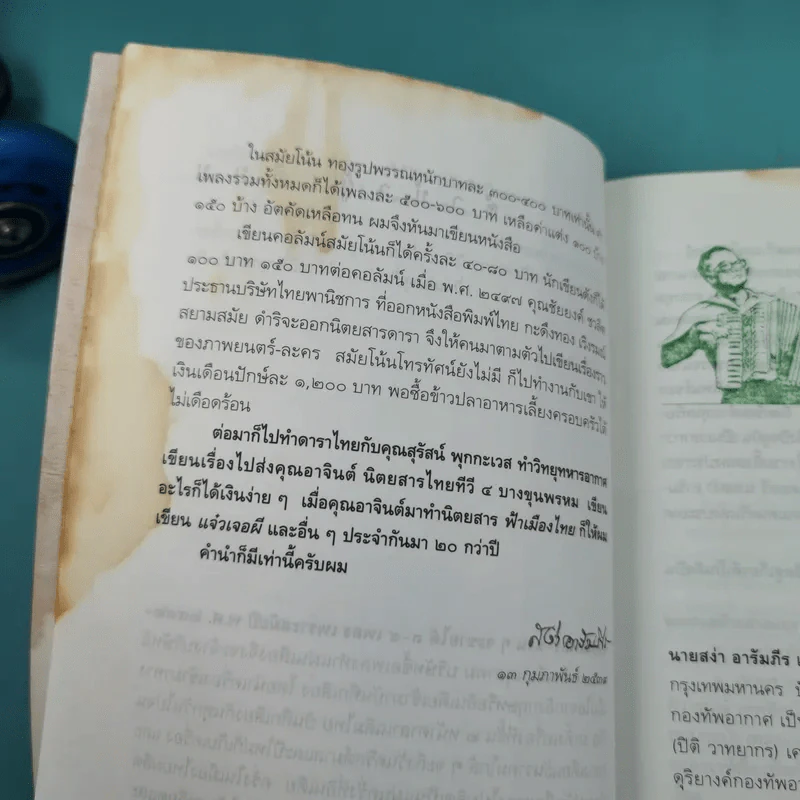 ในสมัยโน้น ทองรูปพรรณหนักบาทละ ๓๐๐-๔๐๐ บาทเท่านั้น
เพลงรวมทั้งหมดก็ได้เพลงละ ๕๐๐-๖๐๐ บาท เหลือค่าแต่ง ๑๐๐
๑๕๐ บ้าง อัตคัดเหลือทน ผมจึงหันมาเขียนหนังสือ
เขียนคอลัมน์สมัยโน้นก็ได้ครั้งละ ๔๐-๘๐ บาท นักเขียนดังก็ได้
๑๐๐ บาท ๑๕๐ บาทต่อคอลัมน์ เมื่อ พ.ศ. ๒๔๙๗ คุณชัยยงค์ ชวลิต
ประธานบริษัทไทยพานิชการ ที่ออกหนังสือพิมพ์ไทย กะดึงทอง เริงรมณ์
สยามสมัย ดำริจะออกนิตยสารดารา จึงให้คนมาตามตัวไปเขียนเรื่องราว
ของภาพยนตร์-ละคร สมัยโน้นโทรทัศน์ยังไม่มี ก็ไปทำงานกับเขา ได้
เงินเดือนปักษ์ละ ๑,๒๐๐ บาท พอซื้อข้าวปลาอาหารเลี้ยงครอบครัวได้
ไม่เดือดร้อน
ต่อมาก็ไปทำดาราไทยกับคุณสุรัสน์ พุกกะเวส ทำวิทยุทหารอากาศ
เขียนเรื่องไปส่งคุณอาจินต์ นิตยสารไทยทีวี ๔ บางขุนพรหม เขียน
อะไรก็ได้เงินง่าย ๆ เมื่อคุณอาจินต์มาทำนิตยสาร ฟ้าเมืองไทย ก็ให้ผม
เขียน แจ๋วเจอผี และอื่น ๆ ประจำกันมา ๒๐ กว่าปี
คำนำก็มีเท่านี้ครับผม
๑๓ กุมภาพันธ์ ๒๕๓๑
นายสง่า อารัมภีร
กรุงเทพมหานคร
กองทัพอากาศ เป็
(ปิติ วาทยากร) เค
ดุริยางค์กองทัพอา